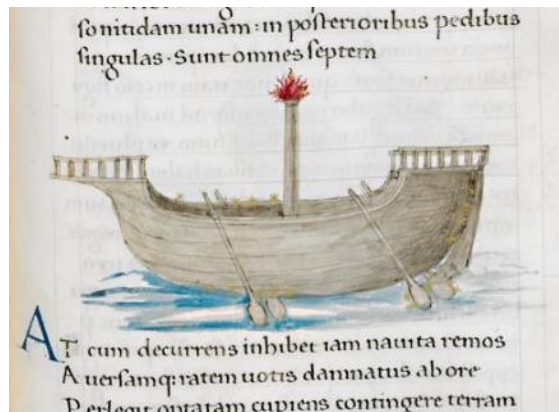 sonitidam unam : in posterioribus pedibus
singulas · Sunt omnes septem
AT cum decurrens inhibet iam navita remos
A uersamq; ratem uotis damnatus ab ore
P erlegit optatam cupiens contingere terram